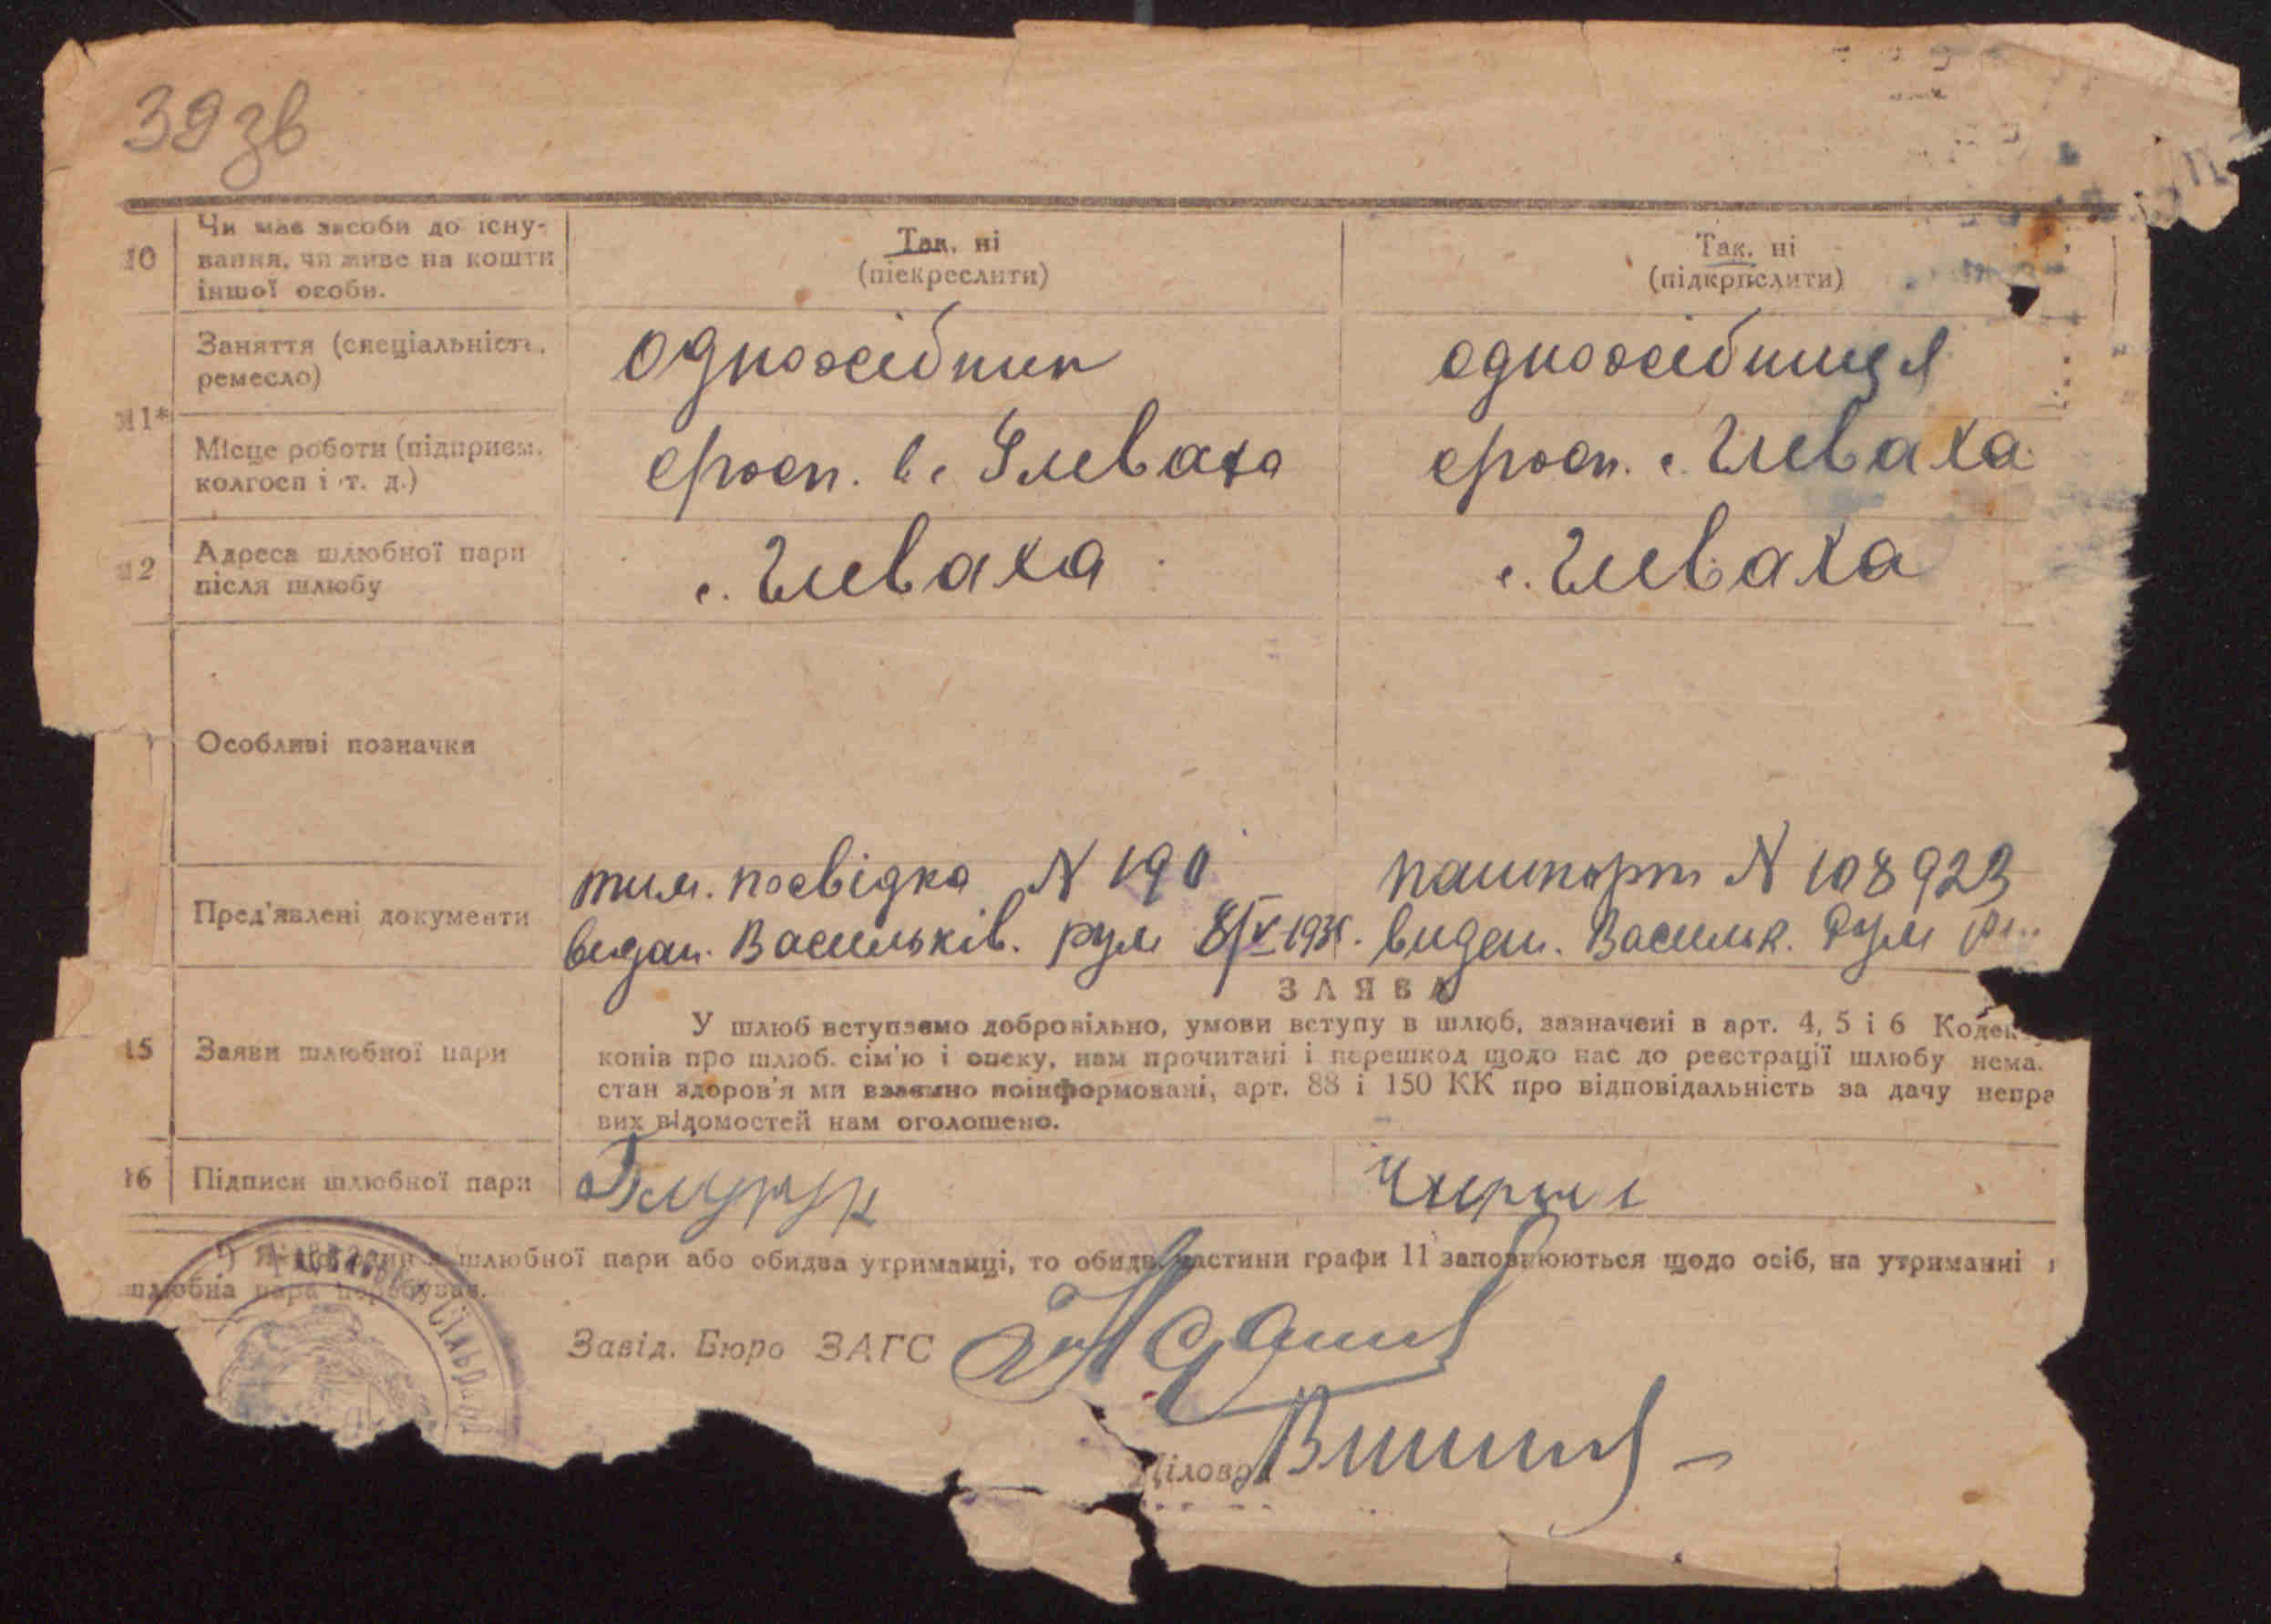 39 зв
10
Чи має засоби до існу-
вання, чи живе на кошти
іншої особи.
Так, ні
(піекреслити)
Так, ні
(підкрпслити)
11*
Заняття (спеціальність,
ремесло)
одноосібник
одноосібниця
Місце роботи (підприєм.
колгосп і т. д.)
с. Глеваха
с. Глеваха
12
Адреса шлюбної пари
після шлюбу
с. Глеваха
с. Глеваха
Особливі позначки
Пред'явлені документи
тим. посвідка N 190
видан. Васильків. рум 8/V 193
пашпорт N 108923
видан. Васильк. Рум
ЗАЯВА
15
Заяви шлюбної пари
У шлюб вступаємо добровільно, умови вступу в шлюб, зазначені в арт. 4, 5 і 6 Кодек
конів про шлюб. сім'ю і опеку, нам прочитані і перешкод щодо нас до реєстрації шлюбу нема.
стан здоров'я ми взаємно поінформовані, арт. 88 і 150 КК про відповідальність за дачу непра
вих відомостей нам оголошено.
16
Підписи шлюбної пари
*) Якщо один з шлюбної пари або обидва утриманці, то обидві частини графи 11 заповнюються щодо осіб, на утриманні
шлюбна пара перебуває.
Завід. Бюро ЗАГС
Діловод